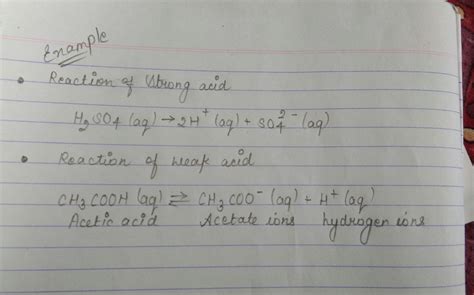 Example
• Reaction of Strong acid
H₂SO₄ (aq) → 2H⁺ (aq) + SO₄²⁻ (aq)
• Reaction of weak acid
CH₃COOH (aq) ⇌ CH₃COO⁻ (aq) + H⁺ (aq)
Acetic acid Acetate ions hydrogen ions